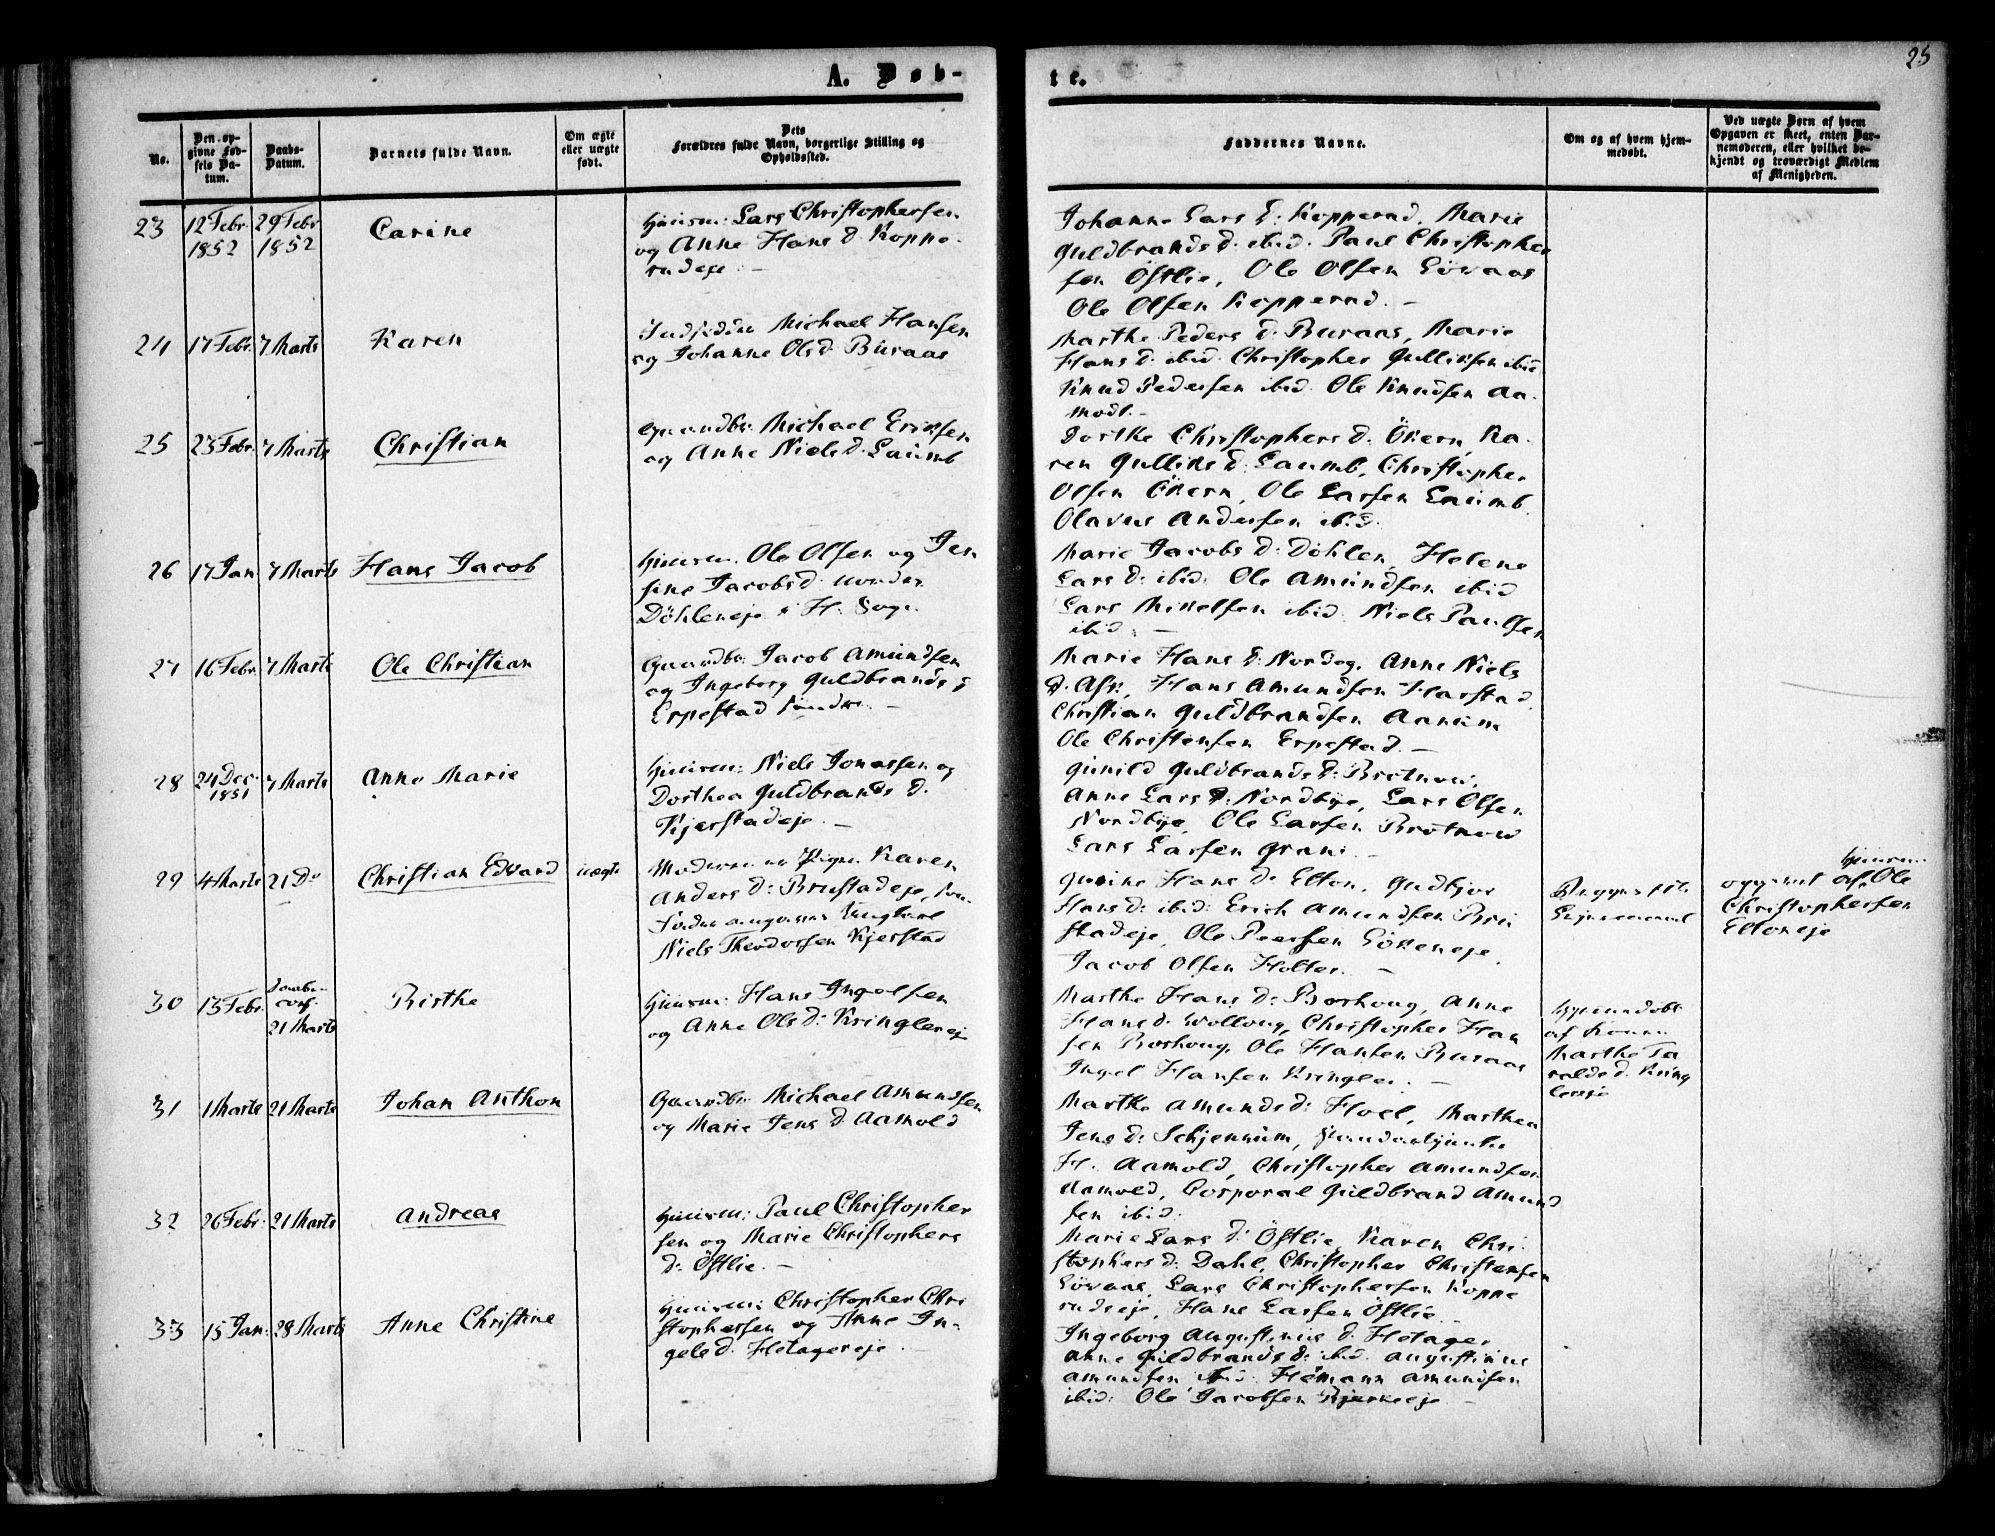 25
A. Døb-
te.
No.
Den opgivne Fødsels Datum.
Daabs-Datum.
Barnets fulde Navn.
Om ægte eller uægte født.
Dets
Forældres fulde Navn, borgerlige Stilling og
Opholdssted.
Faddernes Navne.
Om og af hvem hjemmedøbt.
Ved uægte Børn af hvem
Opgaven er skeet, enten Bar-
nemoderen, eller hvilket be-
kjendt og troværdigt Medlem
af Menigheden.
23
12 Febr 1852
29 Febr 1852
Carine
Huusm: Lars Christophersen
og Anne Hans d. Koppe-
rudeje. –
Johanne Lars d: Kopperud, Marie
Guldbrands d. ibid. Paul Christopher
sen Östlie, Ole Olsen Lövaas
Ole Olsen Kopperud. –
24
17 Febr.
7 Marts
Karen
Michael Hansen
og Johanne Ols d. Buraas
Marthe Peders d. Buraas, Marie
Hans d. ibid. Christopher Gulliksen ibid
Knud Pedersen ibid. Ole Knudsen Aa-
modt. –
25
23 Febr.
7 Marts
Christian
Gaardbr. Michael Eriksen
og Anne Niels d. Laumb
Dorthe Christophers d. Ökern, Ka-
ren Gulliks d. Laumb, Christopher
Olsen Ökern, Ole Larsen Laumb
Olavus Andersen ibid.
26
17 Jan
7 Marts
Hans Jacob
Huusm. Ole Olsen og Jen
sine Jacobs d. nordre
Döhleneje i H. Sogn
Marie Jacobs d: Döhlen, Helene
Lars d: ibid: Ole Amundsen ibid
Lars Mikelsen ibid. Niels Paulsen
ibid. –
27
16 Febr.
7 Marts
Ole Christian
Gaardbr. Jacob Amundsen
og Ingeborg Guldbrands d
Erpestad söndre. –
Marie Hans d. Nordeg, Anne Niels
d. Ask, Hans Amundsen Harstad
Christian Guldbrandsen Aanrum
Ole Christensen Erpestad. –
28
24 Dec. 1851
7 Marts
Anne Marie
Huusm: Niels Jonassen og
Dorthea Guldbrands d.
Kjerstadeje. –
Gunild Guldbrands d: Brotnow,
Anne Lars d. Nordbye, Lars Olsen
Nordbye, Ole Larsen Brotnow
Lars Larsen Grani. –
29
4 Marts
21 Do
Christian Edvard
uægte
Moderen er Pigen Karen
Anders d: Brustadeje, som
Fader angives Ungkarl
Niels Theodorsen Kjerstad
Hans d: Elton, Gudbjor
Hans d: ibid: Erich Amundsen Bru
stadeje, Ole Peersen Lökeneje,
Jacob Olsen Holter. –
opgivet af Huusm
Ole
Christophersen
Eltoneje
30
13 Febr.
Daaben
conf.
21 Marts
Birthe
Huusm: Hans Ingelsen
og Anne Ols d: Kringlereje
Marthe Hans d: Borhoug, Anne
Hans d. Wolloug, Christopher Han
sen Borhoug, Ole Hansen Buraas
Ingel Hansen Kringler. –
hjemmedöbt
af Konen
Marthe Ta
ralds d. Kring
lereje
31
1 Marts
21 Marts
Johan Anthon
Gaardbr. Michael Amundsen
og Marie Jens d. Aamold
Marthe Amunds d: Hoel, Marthea
Jens d: Schjennum,
H. Aamold, Christopher Amundsen
Aamold, Corporal Guldbrand Amund
sen ibid.
32
26 Febr:
21 Marts
Andreas
Huusm: Paul Christopher
sen og Marie Christophers
d: Östlie. –
Marie Lars d: Östlie, Karen Chri
stophers d: Dahl, Christopher Christensen
Lövaas, Lars Christophersen Koppe
rudseje, Hans Larsen Östlie.
33
15 Jan.
28 Marts
Anne Christine
Huusm: Christopher Chri
stophersen og Anne In-
gels d. Hetagereje. –
Ingeborg Augustinus d. Hetager
Anne Guldbrands d: ibid. Augustinus
Amundsen ibid. Hermann Amundsen
ibid: Ole Jacobsen Bjerkeeje –